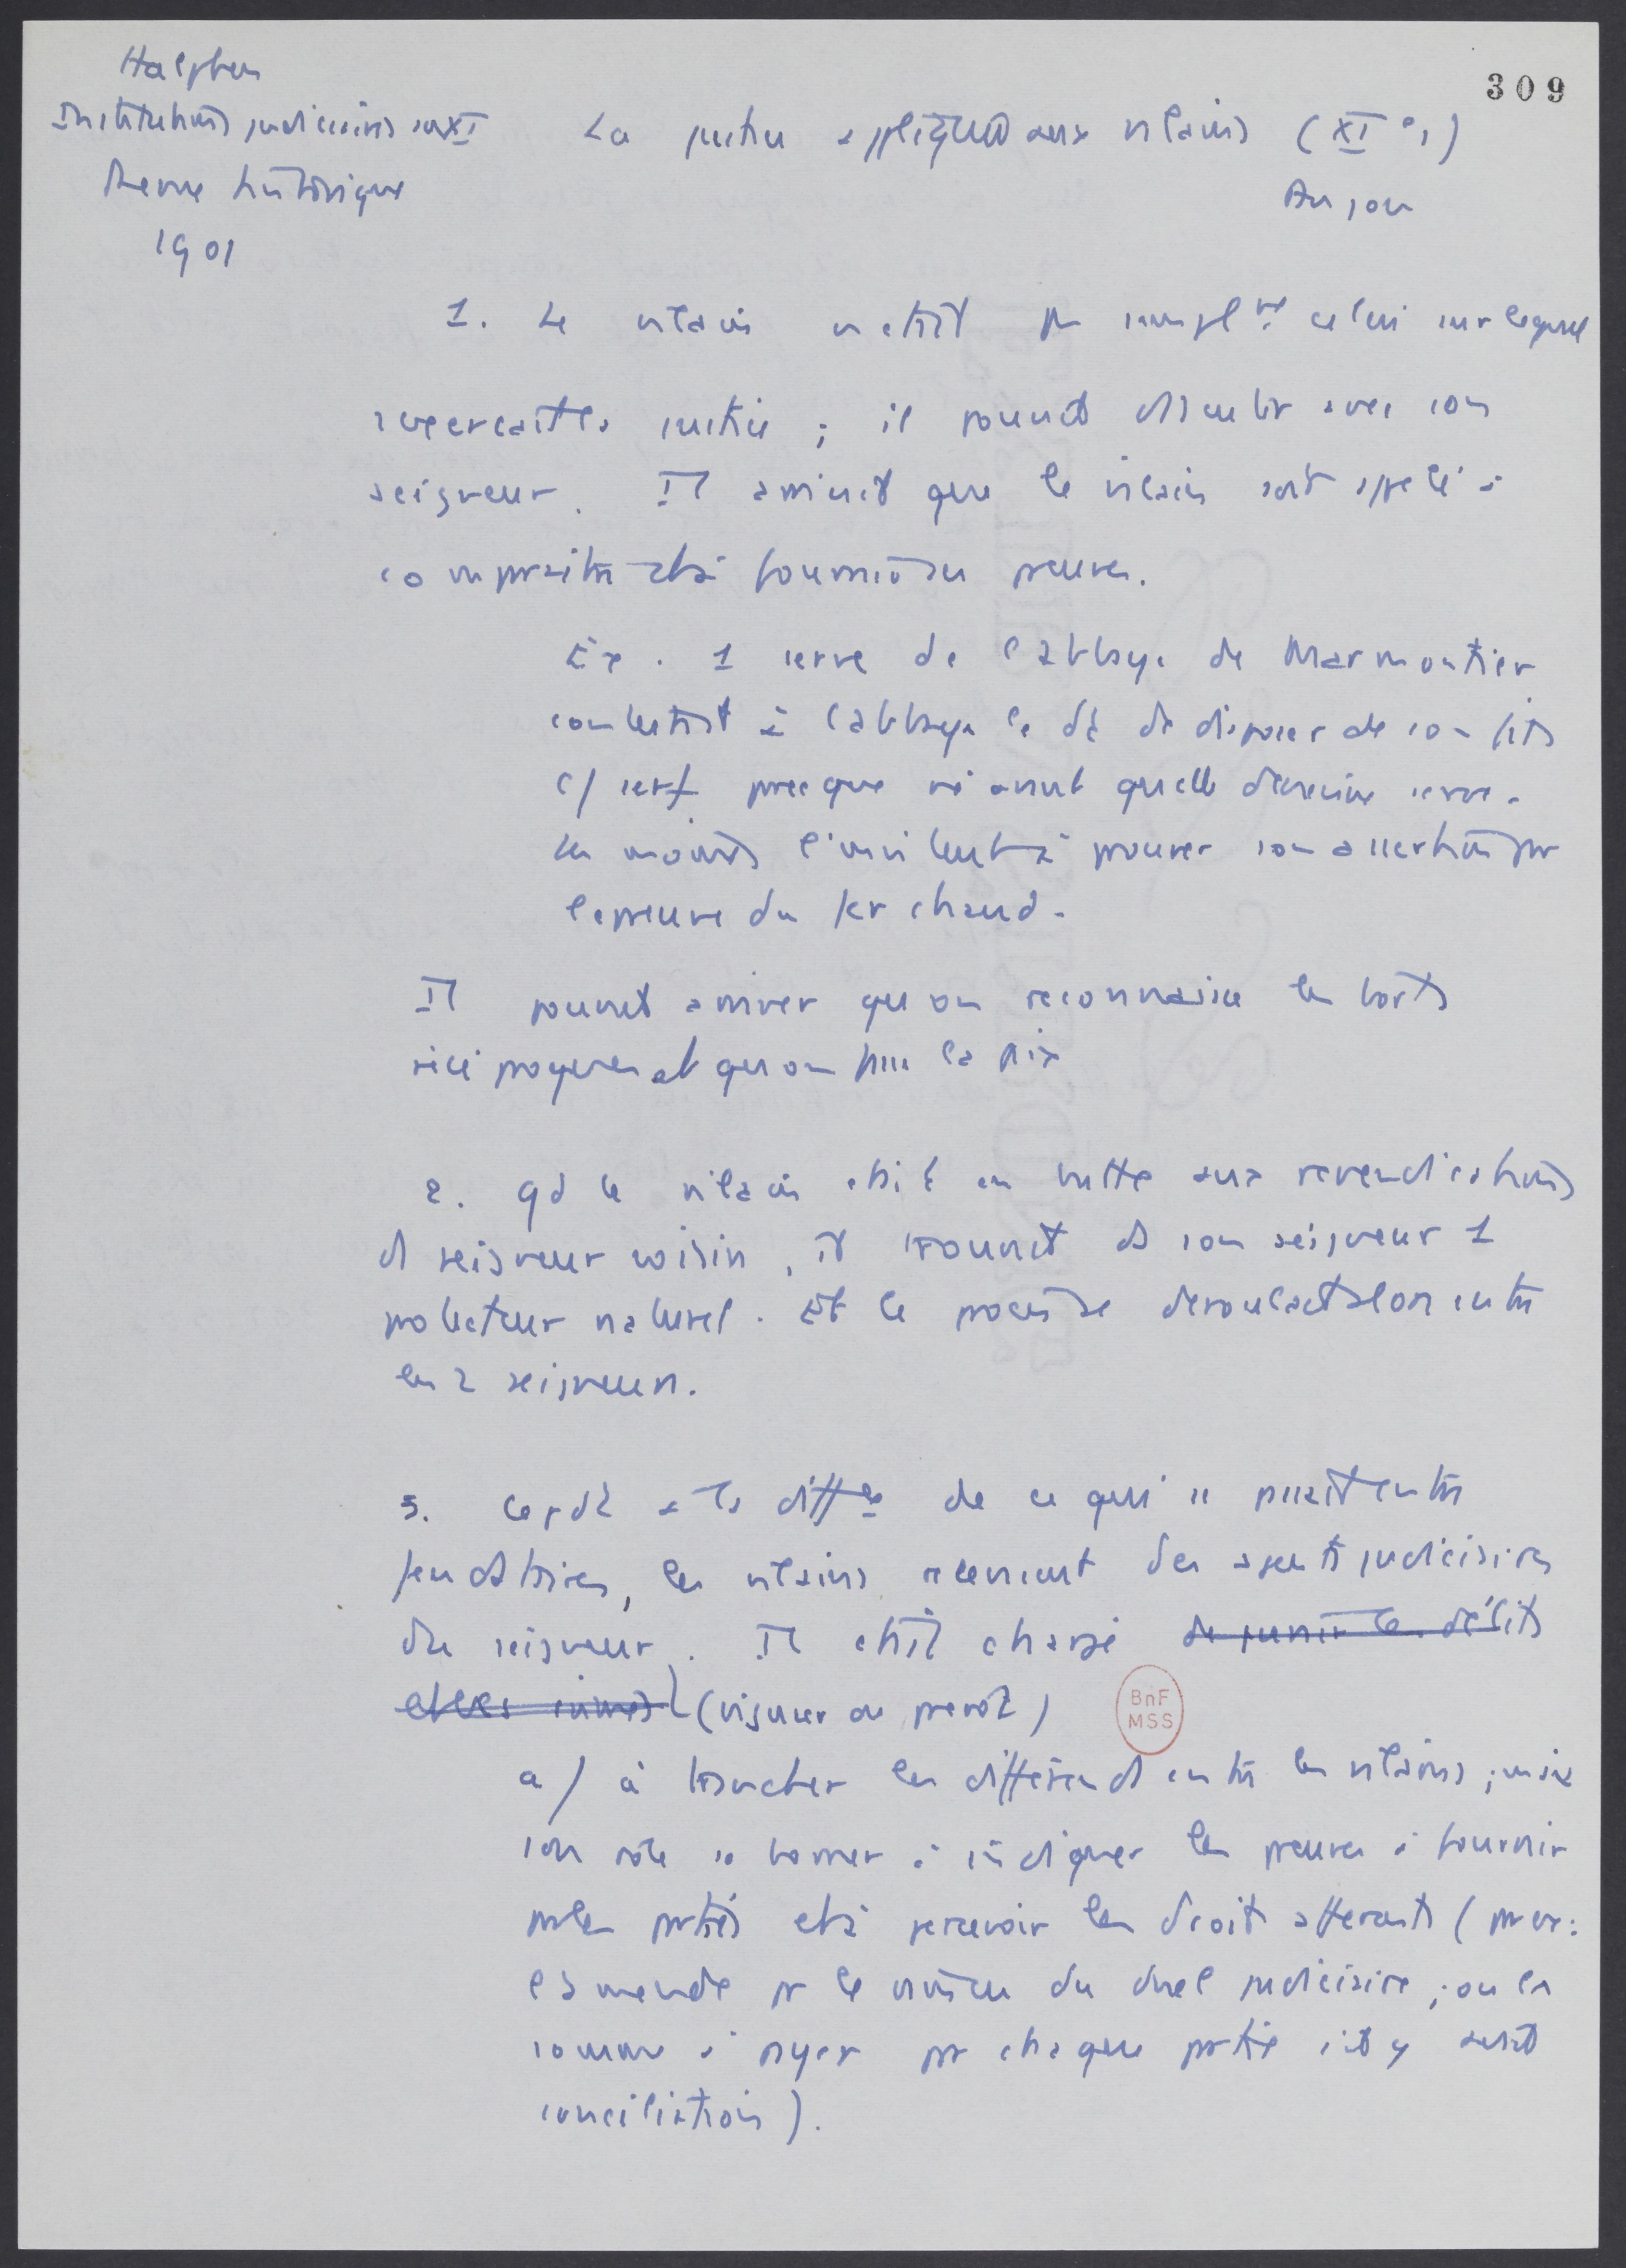 Halphen
309
Institutions judiciaires au XI
La justice appliquée aux vilains (XI e s)
Revue historique
Anjou
1901
1. Le vilain n'etait pas simplt celui sur lequel
s'exercait la justice ; il pouvait discuter avec son
seigneur. Il arrivait que le vilain soit appelé à
comparaitre et à fournir des preuves.
Ex. 1 serve de l'abbaye de Marmoutier
contestait à l'abbaye le dt de disposer de son fils
c/ serf parce que né avant qu'elle devienne serve.
Les moines l'invitent à prouver son assertion par
l'epreuve du fer chaud.
Il pouvait arriver qu'on reconnaisse les torts
réciproques et qu'on fasse la paix
2. qd le vilain etait en butte aux revendications
d seigneur voisin, il trouvait ds son seigneur 1
protecteur naturel. Et le procès se deroulait alors entre
les 2 seigneurs.
3. Cepdt a la diffce de ce qui se passait entre
feudataires, les vilains relevaient des agents judiciaires
du seigneur. Il etait chargé de punir les délits
et les crimes (viguier ou prevot)
BnF
MSS
a/ à trancher les différends entre les vilains ; mais
son rôle se borner à indiquer les preuves à fournir
par les parties et à percevoir les droits afferants (par ex:
l'amende pr le vaincu du duel judiciaire ; ou la
somme à payer par chaque partie s'il y avait
conciliation).